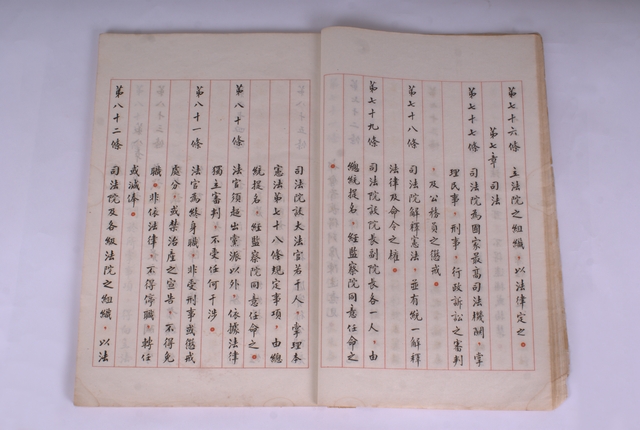 第七十六條　立法院之組織，以法律定之。
第七章　司法
第七十七條　司法院為國家最高司法機關，掌
理民事，刑事，行政訴訟之審判
，及公務員之懲戒。
第七十八條　司法院解釋憲法，並有統一解釋
法律及命令之權。
第七十九條　司法院設院長副院長各一人，由
總統提名，經監察院同意任命之
。
司法院設大法官若干人，掌理本
憲法第七十八條規定事項，由總
統提名，經監察院同意任命之。
第八十條　法官須超出黨派以外，依據法律
獨立審判，不受任何干涉。
第八十一條　法官為終身職，非受刑事或懲戒
處分，或禁治產之宣告，不得免
職。非依法律，不得停職，轉任
或減俸。
第八十二條　司法院及各級法院之組織，以法